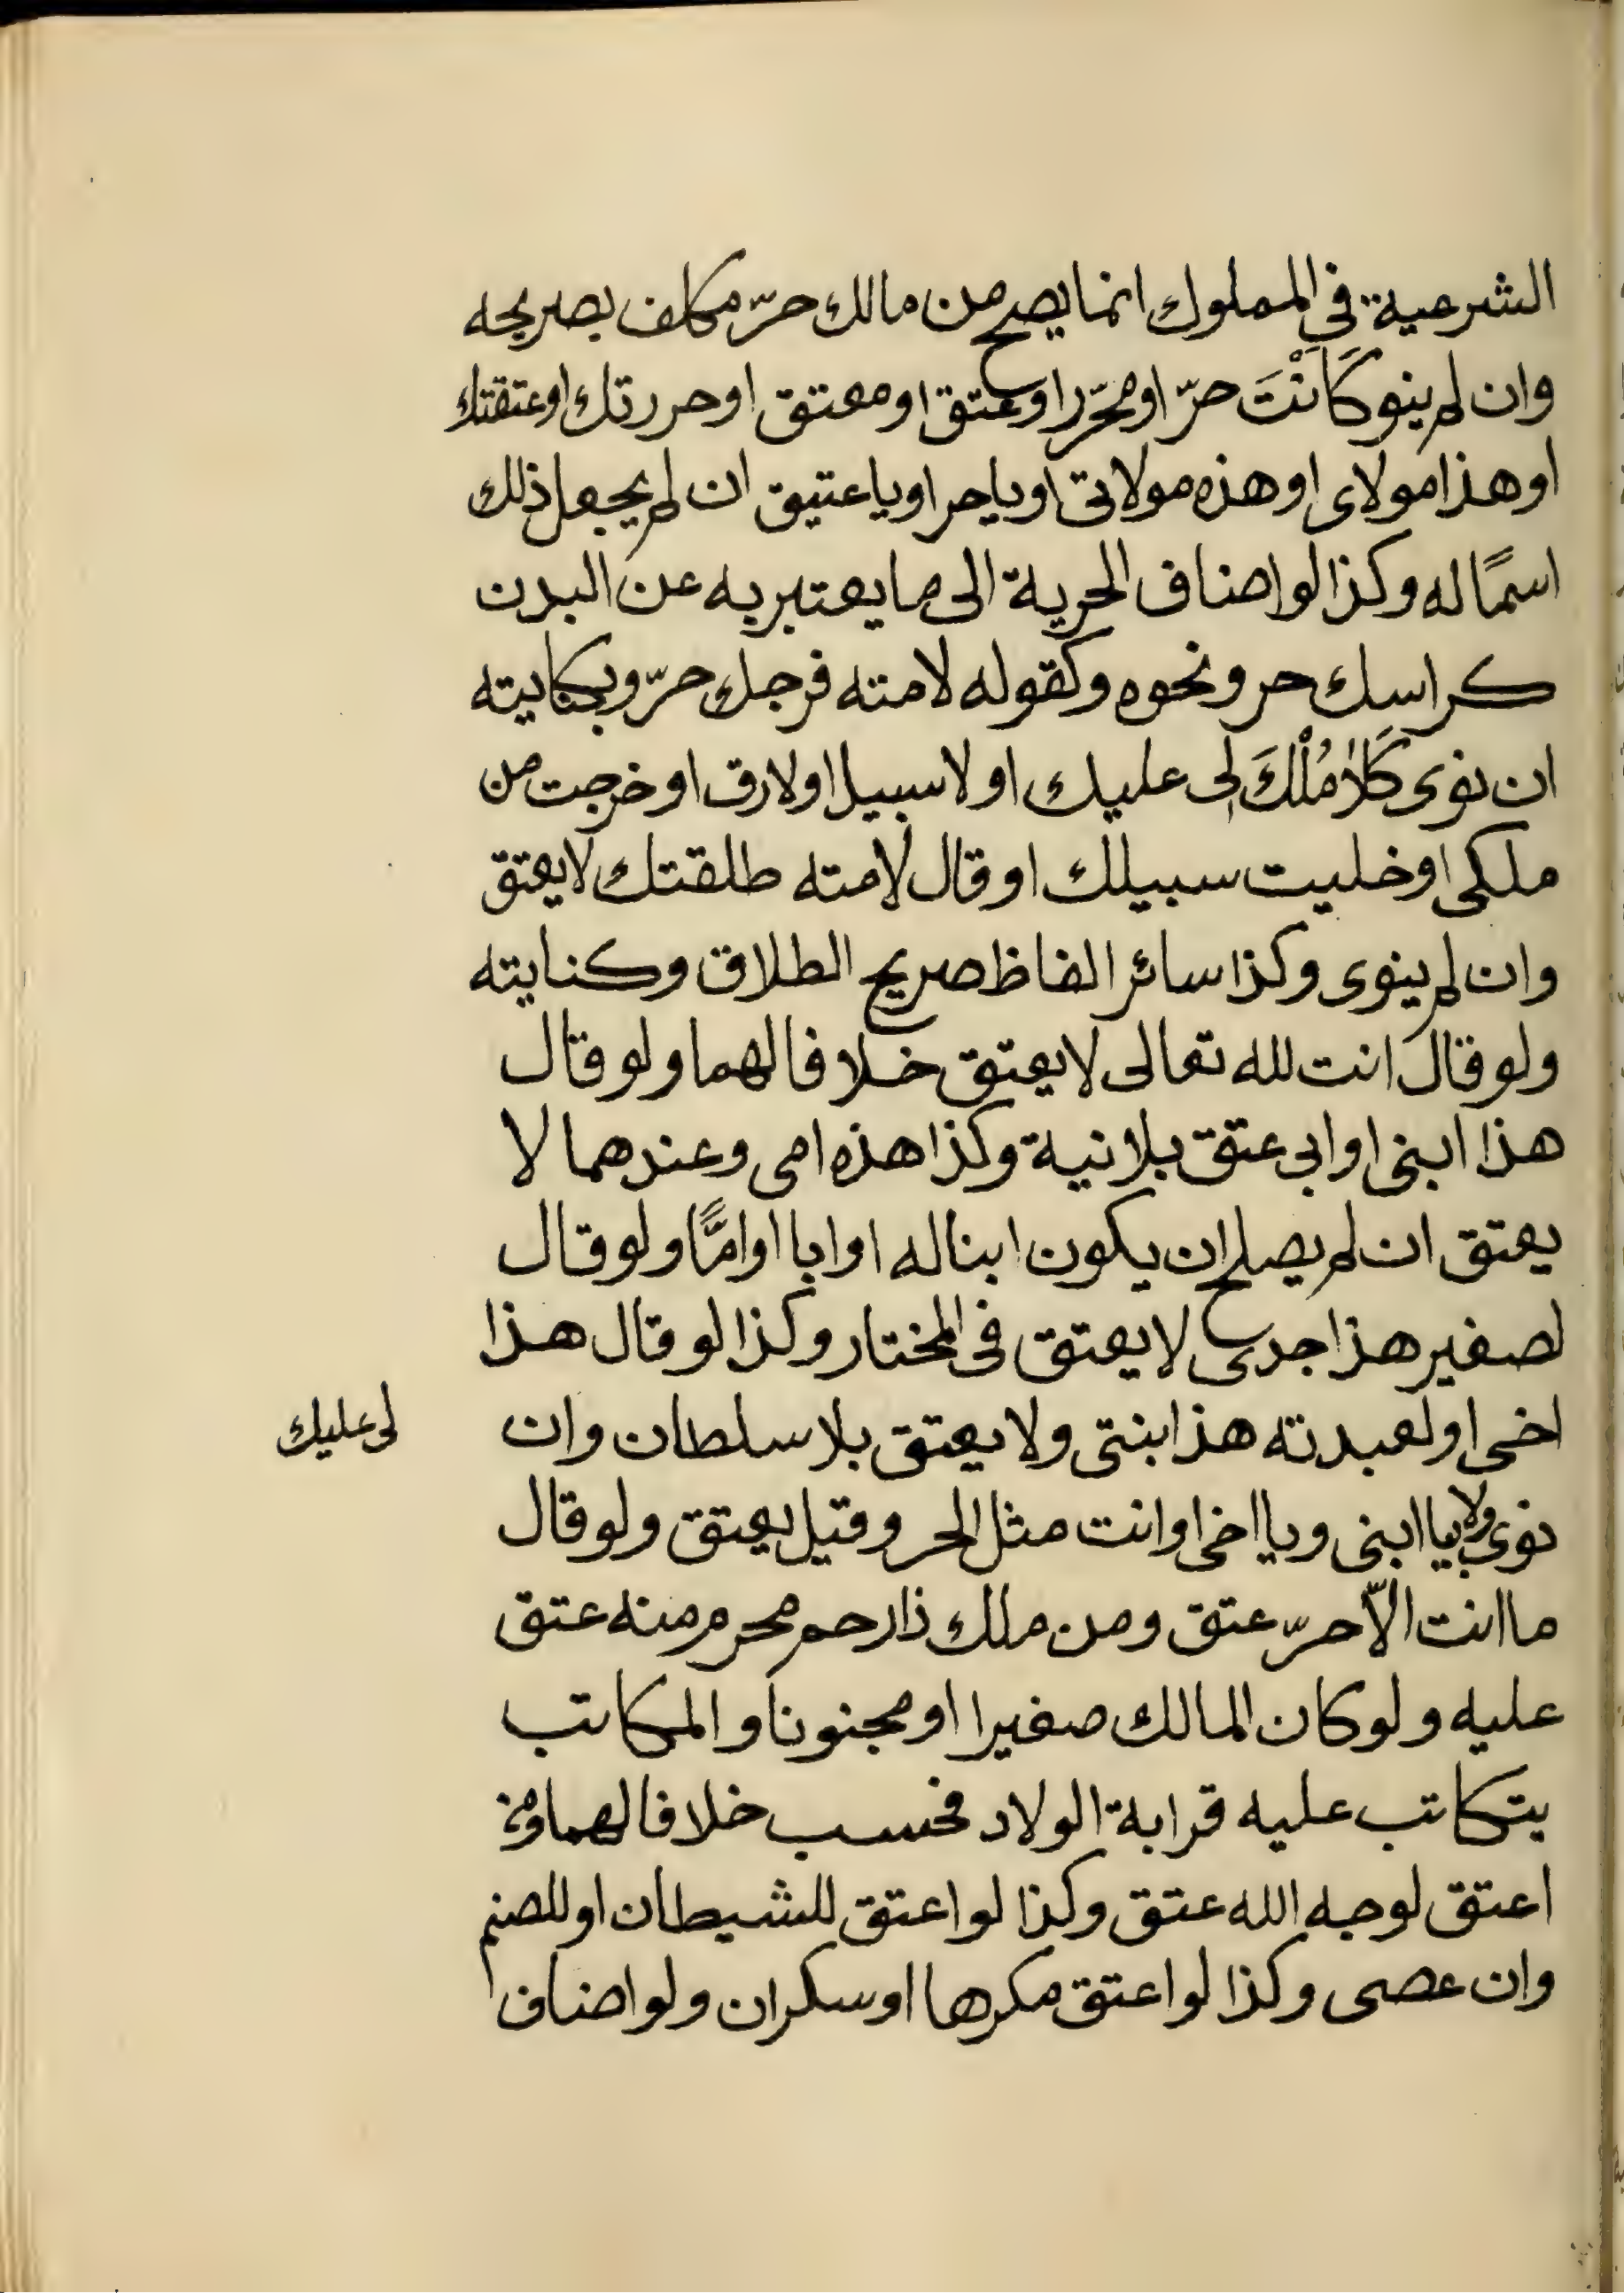 الشرعية فى المملوك انما يصح من مالك حرّ مكلف بصريحه
وان لم ينو كَاَنْتَ حرّ او محرّر او عتق او معتق او حررتك او عتقتك
او هذا مولاى او هذه مولاتى او يا حر او يا عتيق ان لم يجعل ذلك
اسمًا له وكذا لو اضاف الحرية الى ما يعتبر به عن البدن
كراسك حر ونحوه وكقوله لامته فرجك حرّ وبكنايته
ان نوى كَلَا مُلْكَ لى عليك او لا سبيل او لا رق او خرجت من
ملكى او خليت سبيلك او قال لامته طلقتك لا يعتق
وان لم ينوى وكذا سائر الفاظ صريح الطلاق وكنايته
ولو قال انت لله تعالى لا يعتق خلافا لهما ولو قال
هذا ابنى او ابى عتق بلا نية وكذا هذه امى وعندهما لا
يعتق ان لم يصلح ان يكون ابنا له او ابا او امًّا ولو قال
لصغير هذا جدى لا يعتق فى المختار وكذا لو قال هذا
اخى او لعبدته هذا بنتى ولا يعتق بلا سلطان وان
لى عليك
نوى ولا بيا ابنى ويا اخى او انت مثل الحر وقيل يعتق ولو قال
ما انت الّا حرّ عتق ومن ملك ذا رحم محرم منه عتق
عليه ولو كان المالك صغيرا او مجنونا والمكاتب
يتكاتب عليه قرابة الولاد فحسب خلافا لهما ومن
اعتق لوجه الله عتق وكذا لو اعتق للشيطان او للصنم
وان عصى وكذا لو اعتق مكرها او سكران ولو اضاف